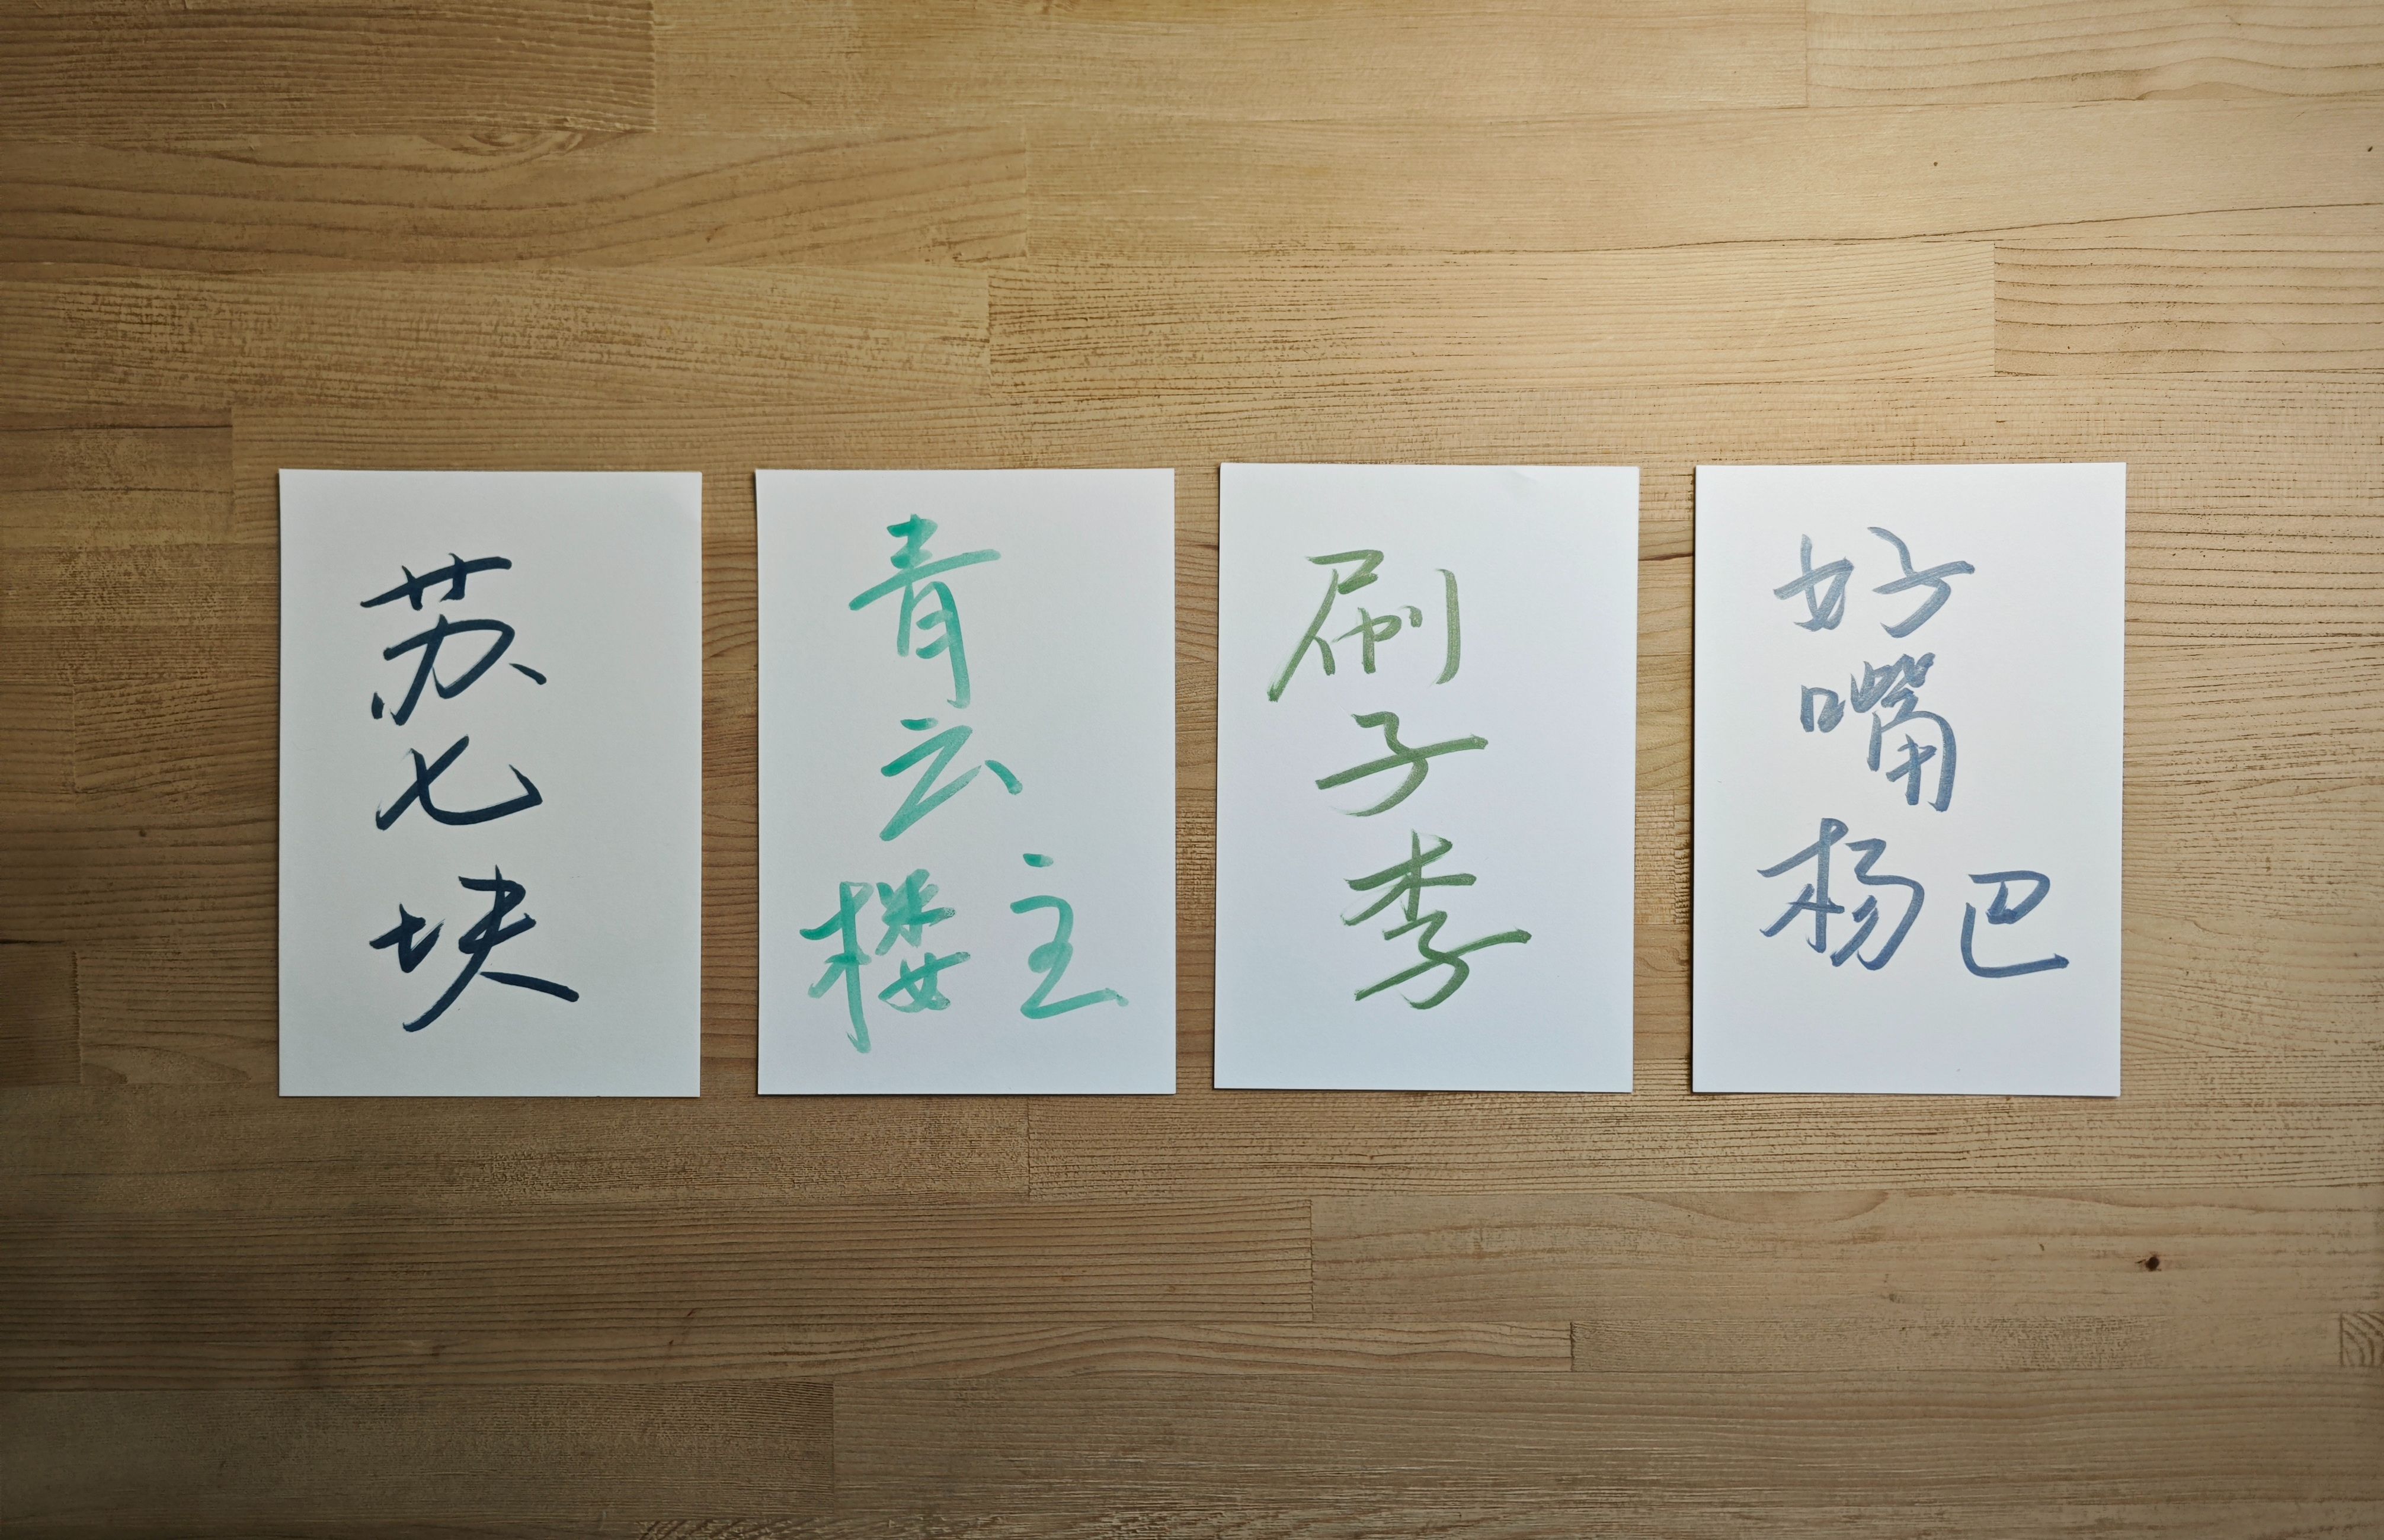 苏七块
青云楼主
刷子李
好嘴杨巴